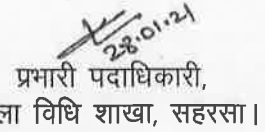 28.01.21
प्रभारी पदाधिकारी,
ला विधि शाखा, सहरसा।